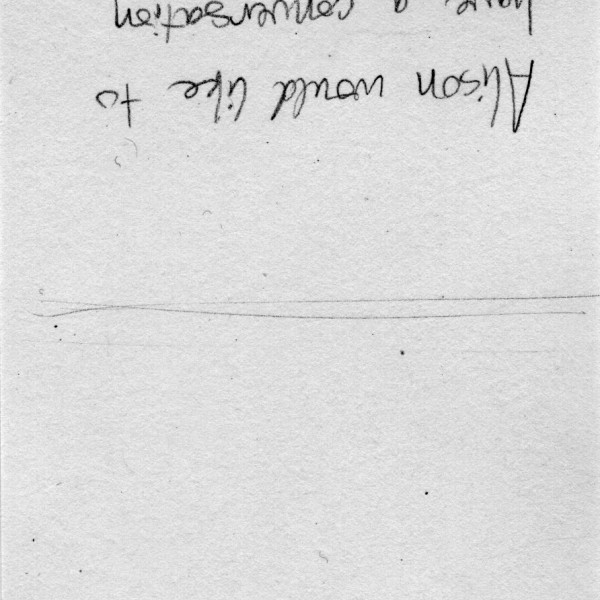 Alison would like to
have a conversation